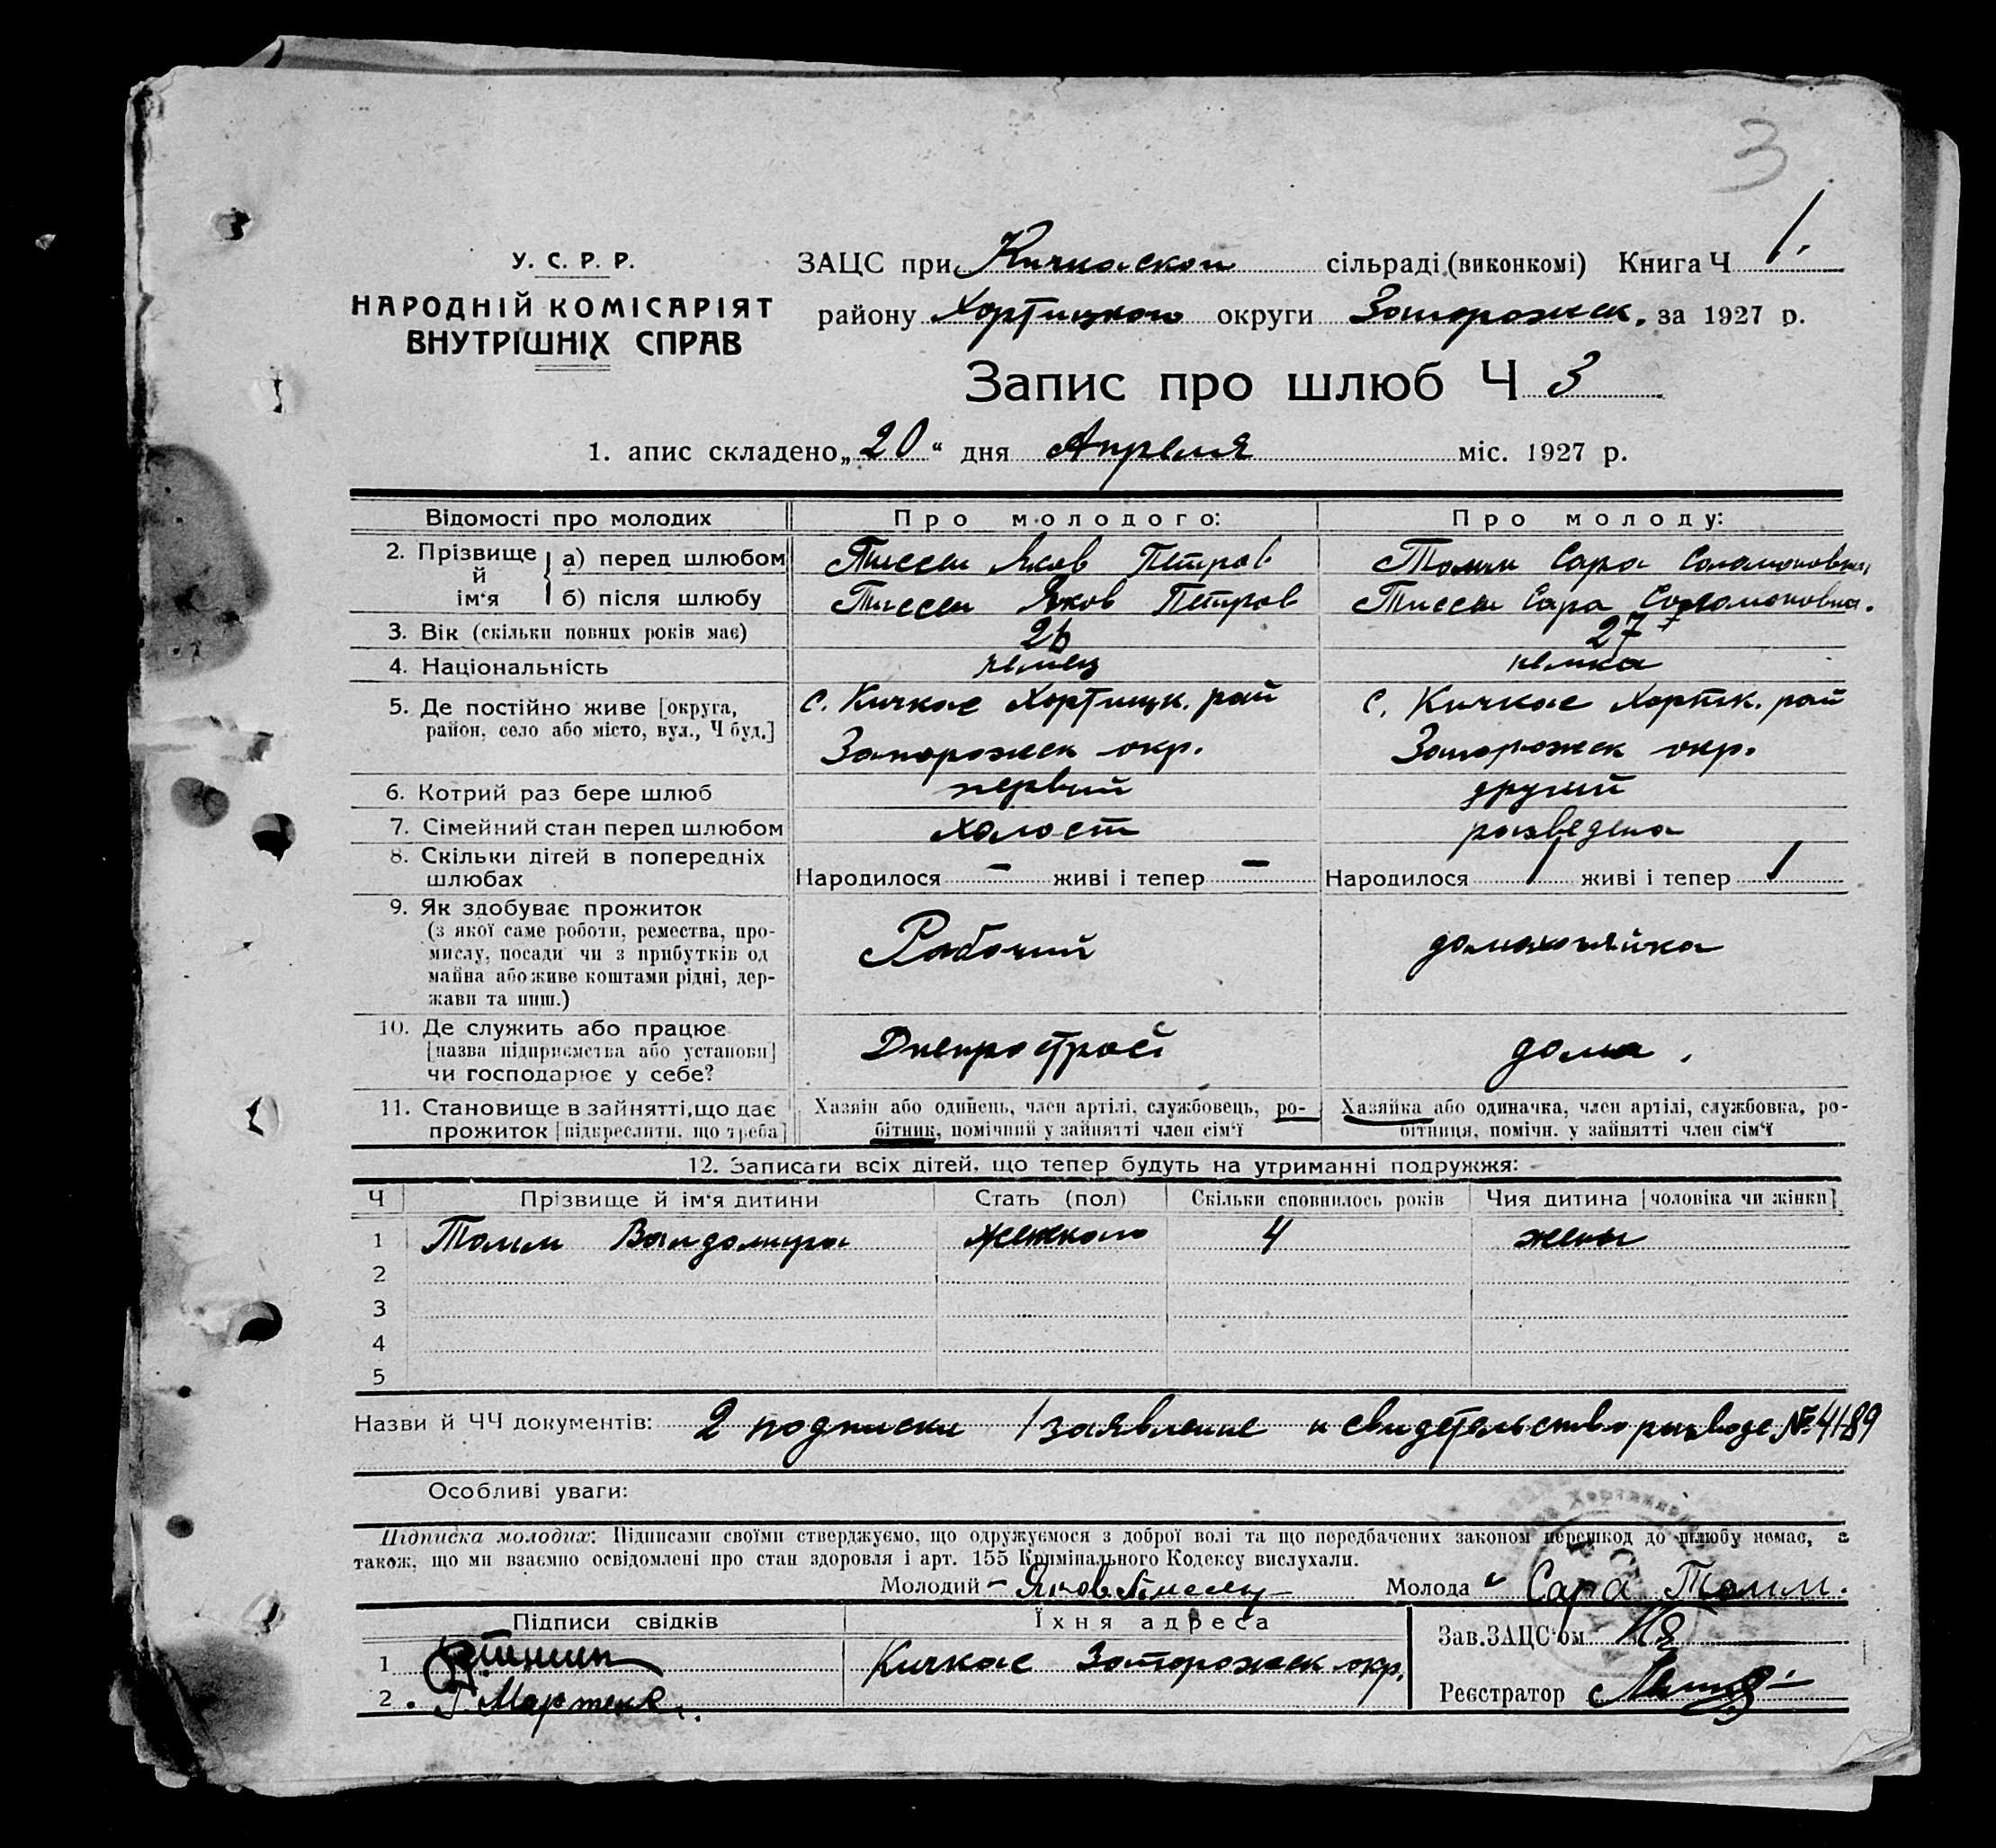 3
У. С. Р. Р.
НАРОДНІЙ КОМІСАРІЯТ
ВНУТРІШНІХ СПРАВ
ЗАЦС при Кичкаском сільраді (виконкомі) Книга Ч 1.
району Хортицкого округи Запорожск. за 1927 р.
Запис про шлюб Ч 3
1. апис складено „20" дня Апреля міс. 1927 р.
Відомості про молодих Про молодого: Про молоду:
2. Прізвище й ім'я а) перед шлюбом Тиссен Яков Петров Томм Сара Соломоновна
б) після шлюбу Тиссен Яков Петров Тиссен Сара Соломоновна.
3. Вік (скільки повних років має) 26 27
4. Національність немец немка
5. Де постійно живе [округа, с. Кичкас Хортицк. рай с. Кичкас Хортк. рай
район, село або місто, вул., Ч буд.] Запорожск окр. Запорожск окр.
6. Котрий раз бере шлюб первий другий
7. Сімейний стан перед шлюбом холост разведена
8. Скільки дітей в попередніх
шлюбах Народилося – живі і тепер – Народилося 1 живі і тепер 1
9. Як здобуває прожиток
(з якої саме роботи, ремества, про-
мислу, посади чи з прибутків од Рабочий домохозяйка
майна або живе коштами рідні, дер-
жави та инш.)
10. Де служить або працює
[назва підприємства або установи] Днепрострой дома.
чи господарює у себе?
11. Становище в зайнятті, що дає Хазяїн або одинець, член артілі, службовець, ро- Хазяйка або одиначка, член артілі, службовка, ро-
прожиток [підкреслити, що треба] бітник, помічний у зайнятті член сім'ї бітниця, помічн. у зайнятті член сім'ї
12. Записати всіх дітей, що тепер будуть на утриманні подружжя:
Ч Прізвище й ім'я дитини Стать (пол) Скільки сповнилось років Чия дитина [чоловіка чи жінки]
1 Томм Валдомира женского 4 жены
2
3
4
5
Назви й ЧЧ документів: 2 подписки 1 заявление и свидетельство разводе № 4189
Особливі уваги:
Підписка молодих: Підписами своїми стверджуємо, що одружуємося з доброї волі та що передбачених законом перешкод до шлюбу немає, а
також, що ми взаємно освідомлені про стан здоровля і арт. 155 Кримінального Кодексу вислухали.
Молодий – Яков Тиссен Молода Сара Томм.
Підписи свідків Їхня адреса Зав. ЗАЦС'ом
1 Кичкас Запорожск окр.
2. Г Мартенс. Реєстратор